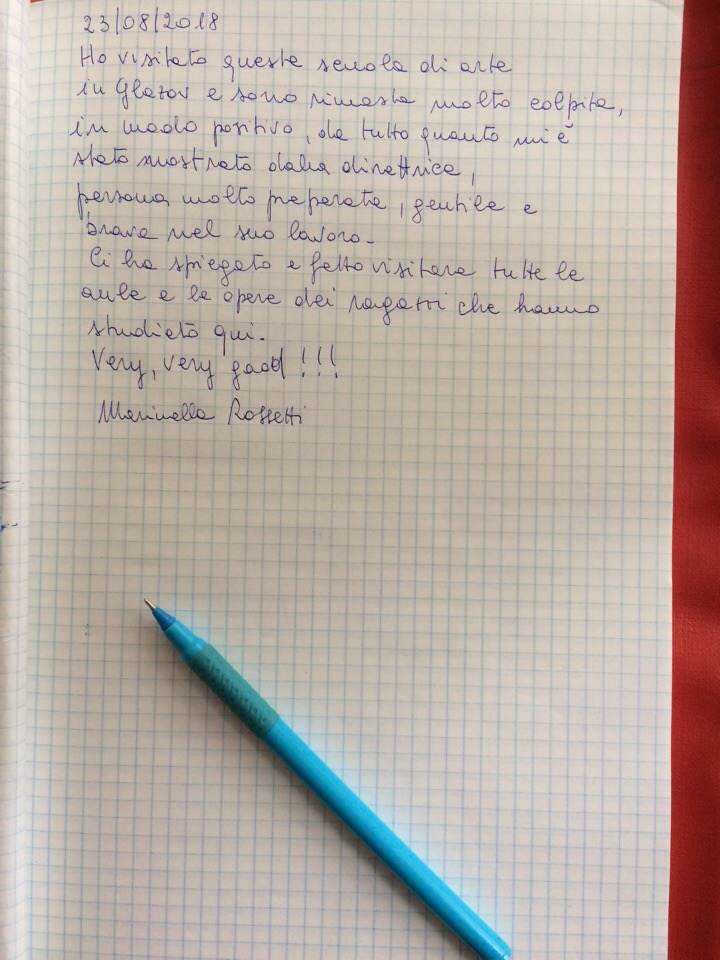 23/08/2018
Ho visitato questa scuola di arte
in Glazov e sono rimasta molto colpita,
in modo positivo, da tutto quanto mi è
stato mostrato dalla direttrice,
persona molto preparata, gentile e
brava nel suo lavoro.
Ci ha spiegato e fatto visitare tutte le
aule e le opere dei ragazzi che hanno
studiato qui.
Very, very good!!!
Marinella Rossetti